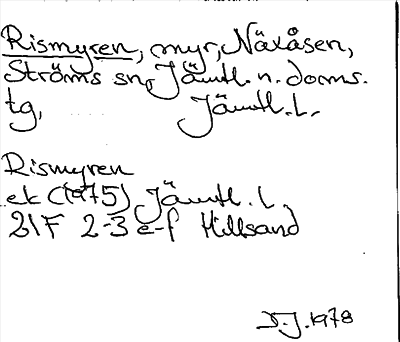 Rismyren, myr, Näxåsen,
Ströms sn, Jämtl. n. doms.
tg, Jämtl. l.
Rismyren
ek (1975) Jämtl. l.
21F 2-3 e-f Hillsand
D.J. 1978